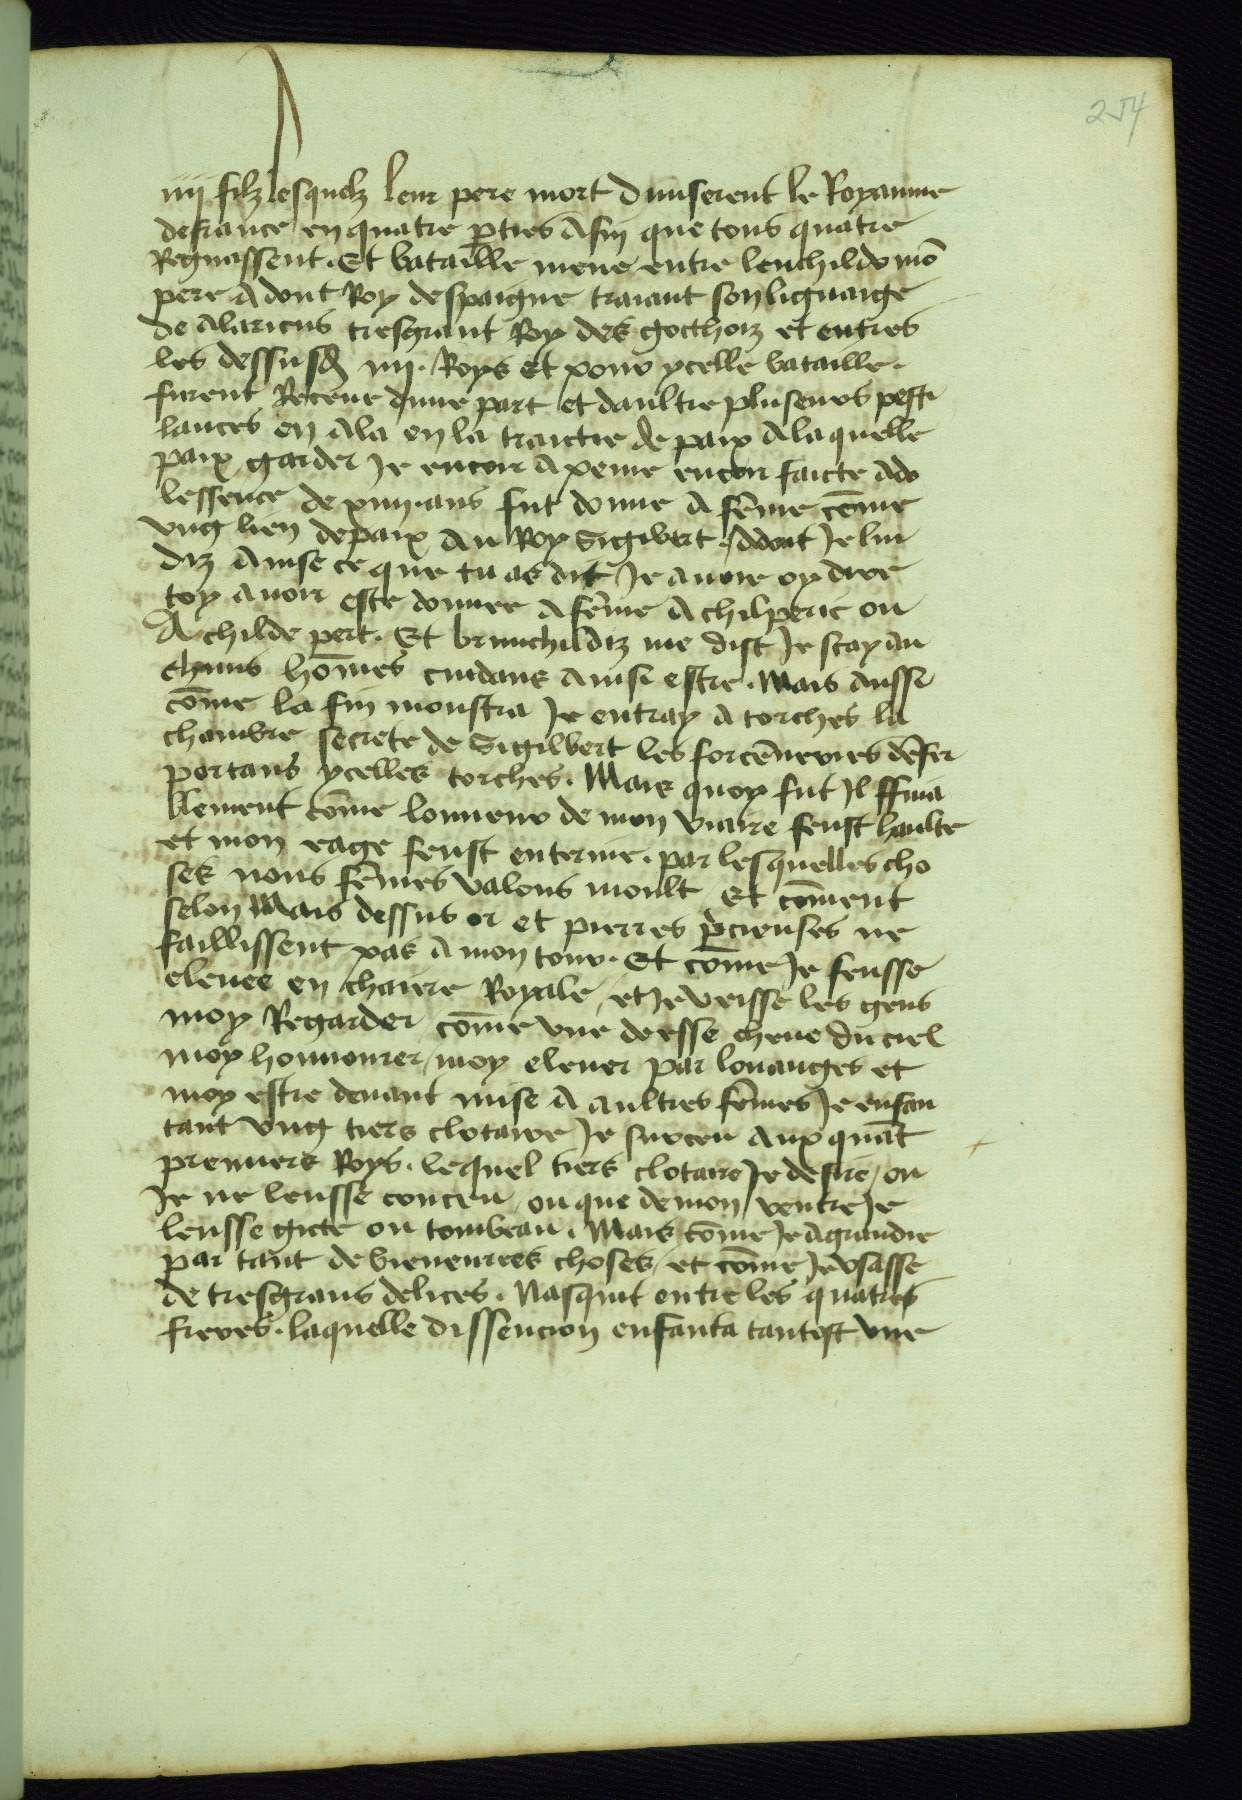 254
iiii filz lesquelz leur pere mort diuiserent le Royaume
de france en quatre pties Afin que tous quatre
Regnassent . Et bataille mene entre leuchildo mō
pere Adont Roy despaigne traiant son lignaige
de alaricus tresgrant Roy des gotthoiz et entres
les dessusd iiii . Roys Et pour ycelle bataille .
furent Receue dune part et daultre pluseurs pesti
lances en Ala en la traictie de paix A laquelle
paix garder Je encoir A peine encoir faicte Ado
lessence de xiiii . ans fut donne A fēme cōme
vng lien de paix Au Roy Sigibert . Adont Je lui
diz Auise ce que tu as dit Je auoie oy dire
toy auoir este donnee A fēme A chilperic ou
A childe pert . Et brunchildiz me dist Je scay au
chuns hōmes cuidans Ainsi estre . Mais Aussi
cōme la fin monstra Je entray A torches la
chambre secrete de Sigilbert les forcēneries dēfer
portans ycelles torches . Mais quoy fut Il ffina
blement cōme lonneur de mon viaire feust haulte
et mon eage feust enterine . par lesquelles cho
ses nous fēmes valons moult Et cōment
selon Mais dessus or et pierres pcieuses ne
faillissent pas A mon tour . Et cōme Je feusse
eleuee en chaiere Royale , et Je veisse les gens
moy Regarder cōme vne deesse cheue du ciel
moy honnourer , moy eleuer par louanges et
moy estre deuant mise A aultres fēmes Je enfan
tant vng tiers clotaire Je surceu aux quāt
premiers Roys . lequel tiers clotaire Je desire , ou
Je ne leusse conceu , ou que de mon ventre Je
leusse gicte ou tombeau . Mais cōme Je Agrandie
par tant de bieneurees choses , et cōme Je vsasse
de tresgrans delices . Nasquit entre les quatres
freres . laquelle dissencion enfanta tantost vne